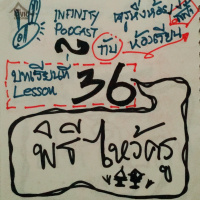 INFINITY
PODCAST
กับ
ครูหิ่งห้อย
ห้องเรียน
บทเรียนที่
Lesson 36
พิธีไหว้ครู